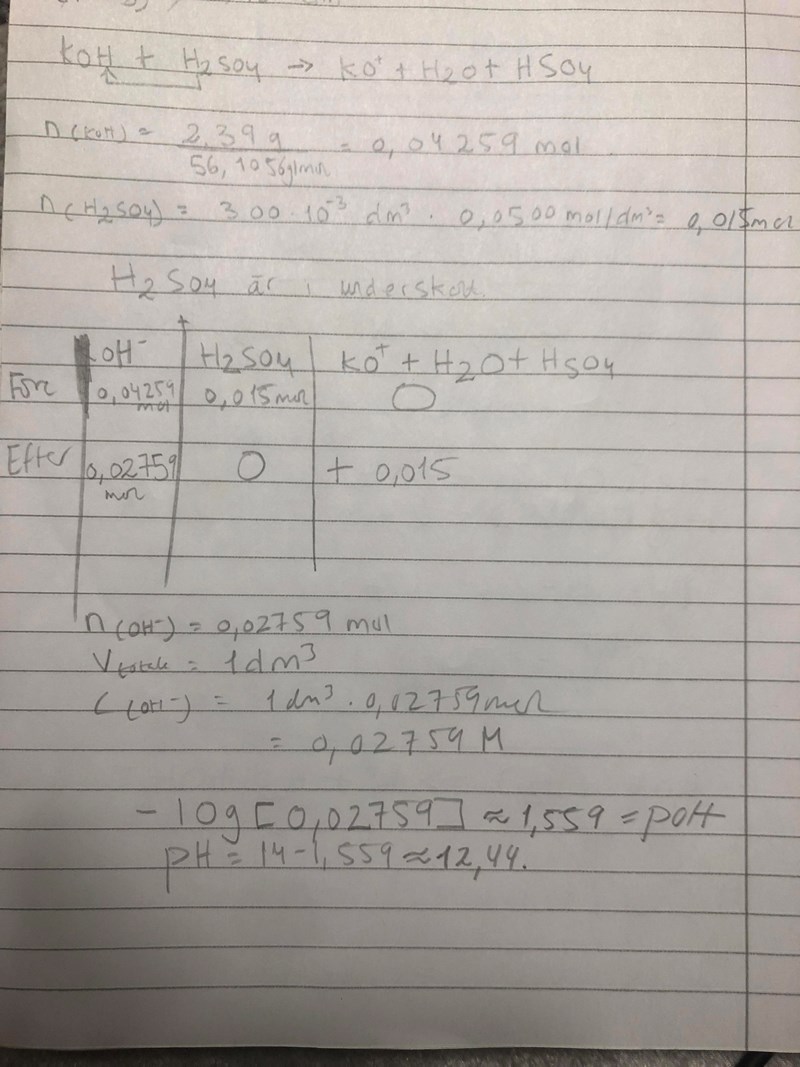 KOH + H₂SO₄ → KO⁺ + H₂O + HSO₄
n(KOH) = 2,39 g / 56,1056 g/mol = 0,04259 mol
n(H₂SO₄) = 300·10⁻³ dm³ · 0,0500 mol/dm³ = 0,015 mol
H₂SO₄ är i underskott.
OH⁻ + H₂SO₄ KO⁺ + H₂O + HSO₄
Före 0,04259 mol 0,015 mol 0
Efter 0,02759 mol 0 + 0,015
n(OH⁻) = 0,02759 mol
Vtotala = 1 dm³
C(OH⁻) = 1 dm³ · 0,02759 mol
= 0,02759 M
- log [0,02759] ≈ 1,559 = pOH
pH = 14-1,559 ≈ 12,44.